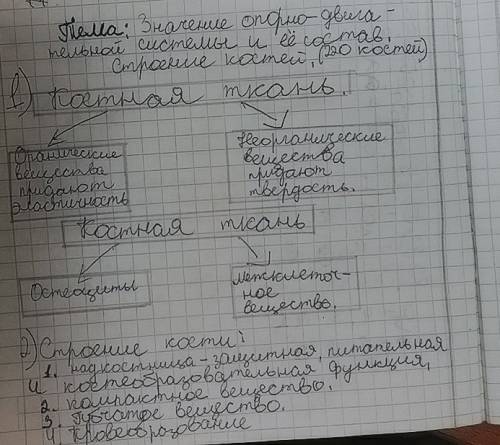 Тема: Значение опорно-двига-
тельной системы и её состав.
Строение костей. (220 костей)
1) Костная ткань.
Органические
вещества
придают
эластичность
Неорганические
вещества
придают
твердость.
Костная ткань
Остеоциты
Межклеточ-
ное
вещество.
2) Строение кости:
1. надкостница - защитная, питательная
и костеобразовательная функция,
2. компактное вещество.
3. Губчатое вещество.
4. Кровеобразование